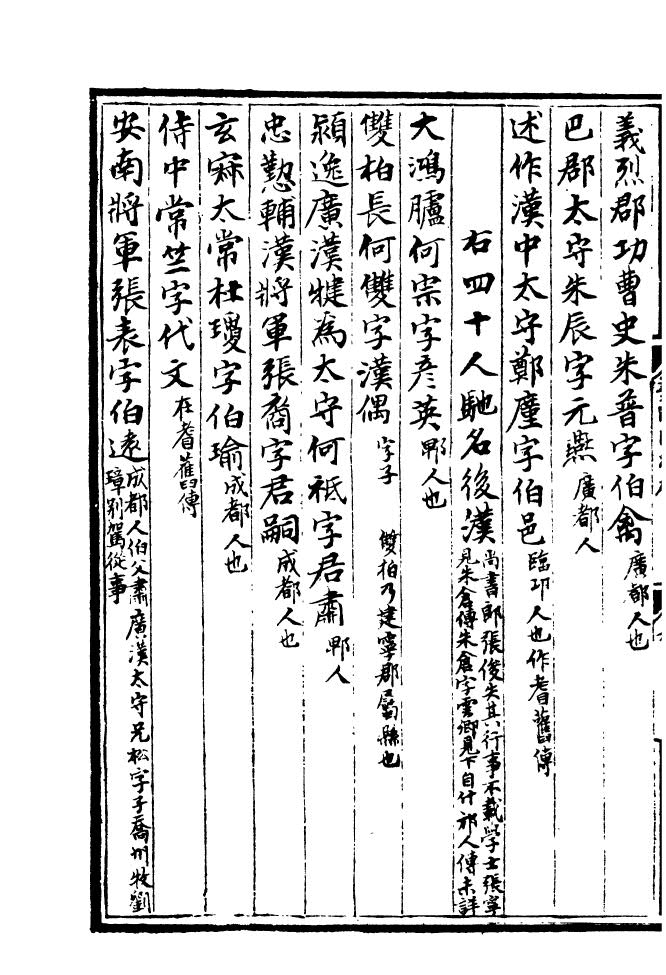 義烈郡功曹史朱普字伯禽 廣都人也
巴郡太守朱辰字元燕 廣都人
述作漢中太守鄭廑字伯邑 臨邛人也作耆舊傳
右四十人馳名後漢 尚書郎張俊失其行事不載學士張寧
見朱倉傳朱倉字雲卿見下自什邡人傳未詳
大鴻臚何宗字彥英 郫人也
雙柏長何雙字漢偶 字子 雙柏乃建寧郡屬縣也
潁逸廣漢犍為太守何祗字君肅 郫人
忠懃輔漢將軍張裔字君嗣 成都人也
玄寂太常杜瓊字伯瑜 成都人也
侍中常竺字代文 在耆舊傳
安南將軍張表字伯遠 成都人伯父肅廣漢太守兄松字子喬州牧劉
璋別駕從事